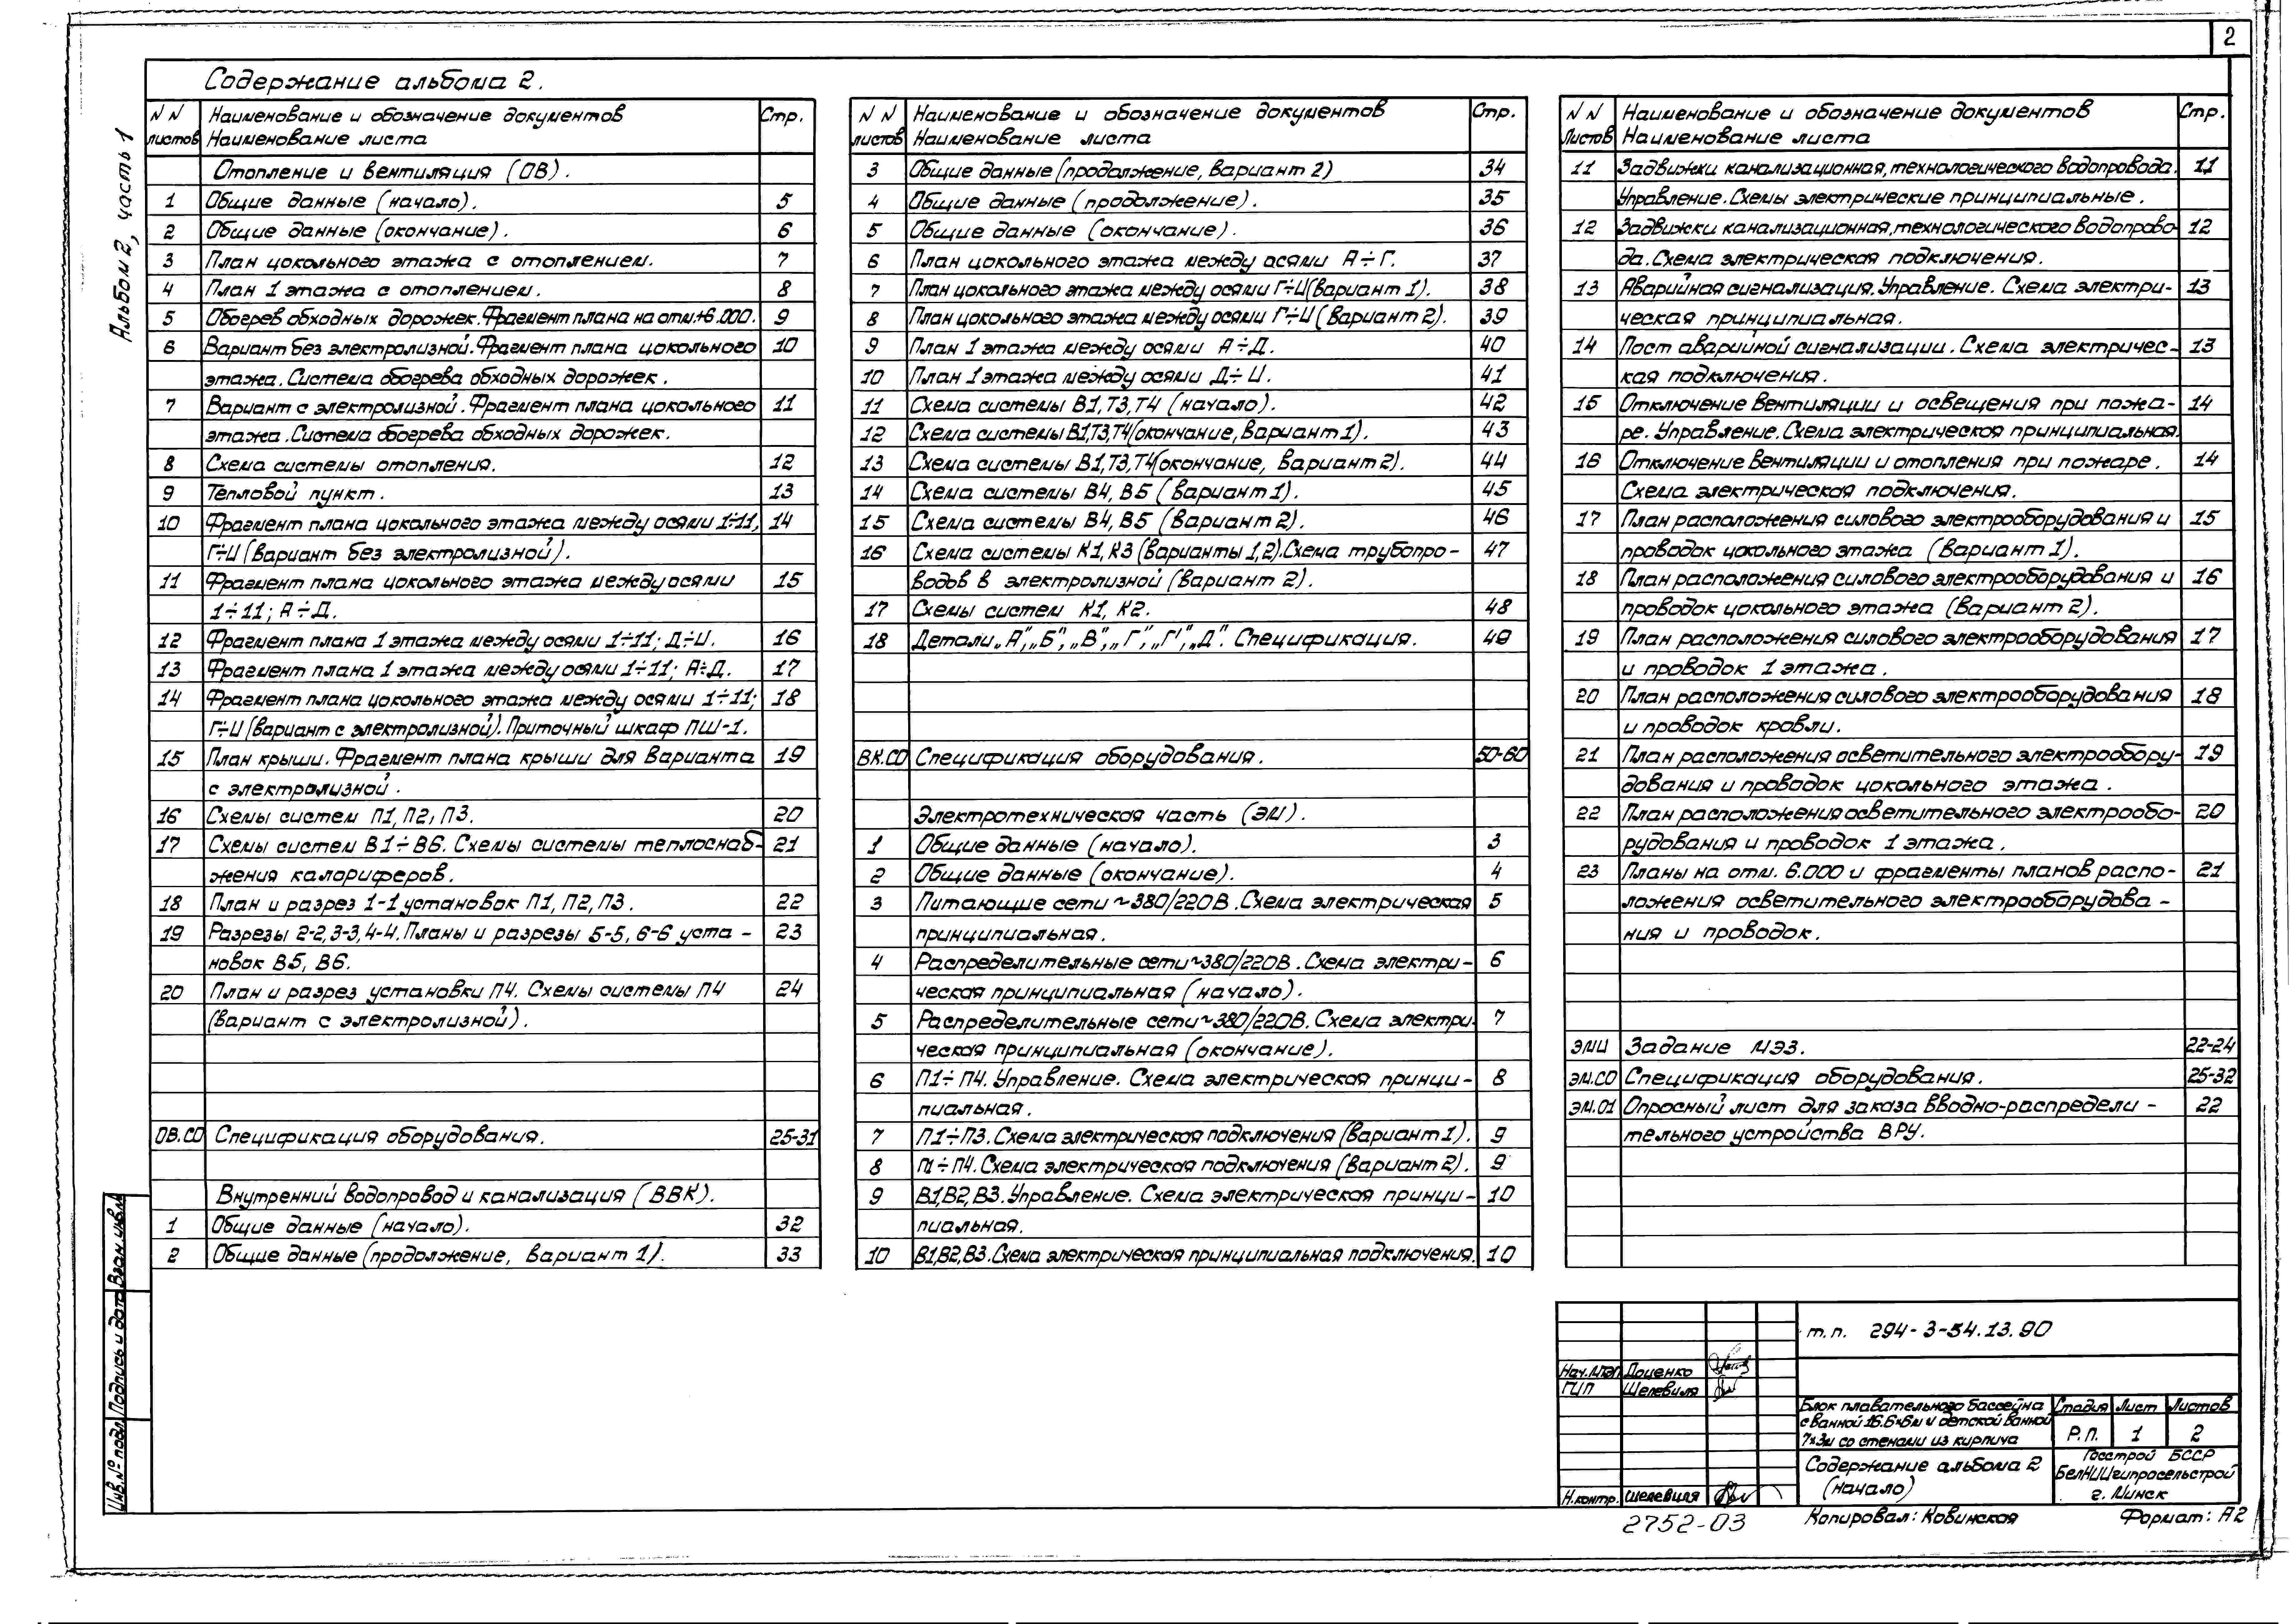 2
Альбом 2, часть 1
Содержание альбома 2.
NN листов Наименование и обозначение документов Наименование листа Стр.
Отопление и вентиляция (ОВ).
1 Общие данные (начало). 5
2 Общие данные (окончание). 6
3 План цокольного этажа с отоплением. 7
4 План 1 этажа с отоплением. 8
5 Обогрев обходных дорожек. Фрагмент плана на отм.+6.000. 9
6 Вариант без электролизной. Фрагмент плана цокольного 10
этажа. Система обогрева обходных дорожек.
7 Вариант с электролизной. Фрагмент плана цокольного 11
этажа. Система обогрева обходных дорожек.
8 Схема системы отопления. 12
9 Тепловой пункт. 13
10 Фрагмент плана цокольного этажа между осями 1÷11; 14
Г÷И (Вариант без электролизной).
11 Фрагмент плана цокольного этажа между осями 15
1÷11; А÷Д.
12 Фрагмент плана 1 этажа между осями 1÷11; Д÷И. 16
13 Фрагмент плана 1 этажа между осями 1÷11; А÷Д. 17
14 Фрагмент плана цокольного этажа между осями 1÷11; 18
Г÷И (вариант с электролизной). Приточный шкаф ПШ-1.
15 План крыши. Фрагмент плана крыши для варианта 19
с электролизной.
16 Схемы систем П1, П2, П3. 20
17 Схемы систем В1÷В6. Схемы системы теплоснаб- 21
жения калориферов.
18 План и разрез 1-1 установок П1, П2, П3. 22
19 Разрезы 2-2, 3-3, 4-4. Планы и разрезы 5-5, 6-6 уста- 23
новок В5, В6.
20 План и разрез установки П4. Схемы системы П4 24
(вариант с электролизной).
ОВ.СО Спецификация оборудования. 25-31
Внутренний водопровод и канализация (ВВК).
1 Общие данные (начало). 32
2 Общие данные (продолжение, вариант 1). 33
NN листов Наименование и обозначение документов Наименование листа Стр.
3 Общие данные (продолжение, вариант 2) 34
4 Общие данные (продолжение). 35
5 Общие данные (окончание). 36
6 План цокольного этажа между осями А÷Г. 37
7 План цокольного этажа между осями Г÷И (вариант 1). 38
8 План цокольного этажа между осями Г÷И (вариант 2). 39
9 План 1 этажа между осями А÷Д. 40
10 План 1 этажа между осями Д÷И. 41
11 Схема системы В1, Т3, Т4 (начало). 42
12 Схема системы В1, Т3, Т4 (окончание, вариант 1). 43
13 Схема системы В1, Т3, Т4 (окончание, вариант 2). 44
14 Схема системы В4, В5 (вариант 1). 45
15 Схема системы В4, В5 (вариант 2). 46
16 Схема системы К1, К3 (варианты 1, 2). Схема трубопро- 47
водов в электролизной (вариант 2).
17 Схемы систем К1, К2. 48
18 Детали „А”, „Б”, „В”, „Г”, „Г'”, „Д”. Спецификация. 49
ВК.СО Спецификация оборудования. 50-60
Электротехническая часть (ЭМ).
1 Общие данные (начало). 3
2 Общие данные (окончание). 4
3 Питающие сети ~380/220В. Схема электрическая 5
принципиальная.
4 Распределительные сети ~380/220В. Схема электри- 6
ческая принципиальная (начало).
5 Распределительные сети ~380/220В. Схема электри- 7
ческая принципиальная (окончание).
6 П1÷П4. Управление. Схема электрическая принци- 8
пиальная.
7 П1÷П3. Схема электрическая подключения (вариант 1). 9
8 П1÷П4. Схема электрическая подключения (вариант 2). 9
9 В1, В2, В3. Управление. Схема электрическая принци- 10
пиальная.
10 В1, В2, В3. Схема электрическая принципиальная подключения. 10
NN листов Наименование и обозначение документов Наименование листа Стр.
11 Задвижки канализационная, технологического водопровода. 11
Управление. Схемы электрические принципиальные.
12 Задвижки канализационная, технологического водопрово- 12
да. Схема электрическая подключения.
13 Аварийная сигнализация. Управление. Схема электри- 13
ческая принципиальная.
14 Пост аварийной сигнализации. Схема электричес- 13
кая подключения.
15 Отключение вентиляции и освещения при пожа- 14
ре. Управление. Схема электрическая принципиальная.
16 Отключение вентиляции и отопления при пожаре. 14
Схема электрическая подключения.
17 План расположения силового электрооборудования и 15
проводок цокольного этажа (вариант 1).
18 План расположения силового электрооборудования и 16
проводок цокольного этажа (вариант 2).
19 План расположения силового электрооборудования 17
и проводок 1 этажа.
20 План расположения силового электрооборудования 18
и проводок кровли.
21 План расположения осветительного электрообору- 19
дования и проводок цокольного этажа.
22 План расположения осветительного электрообо- 20
рудования и проводок 1 этажа.
23 Планы на отм. 6.000 и фрагменты планов распо- 21
ложения осветительного электрооборудова-
ния и проводок.
ЭМИ Задание МЭЗ. 22-24
ЭМ.СО Спецификация оборудования. 25-32
ЭМ.01 Опросный лист для заказа вводно-распредели- 22
тельного устройства ВРУ.
Инв.№ подл. Подпись и дата Взам.инв.№
т.п. 294-3-54.13.90
Доценко
ГИП Шелевиля
Н.контр. Шелевиля
Блок плавательного бассейна
с ванной 16.6×6м и детской ванной
7×3м со стенами из кирпича
Стадия Лист Листов
Р.П. 1 2
Содержание альбома 2
(начало)
Госстрой БССР
БелНИИгипросельстрой
г. Минск
2752-03
Копировал: Ковинская
Формат: А2